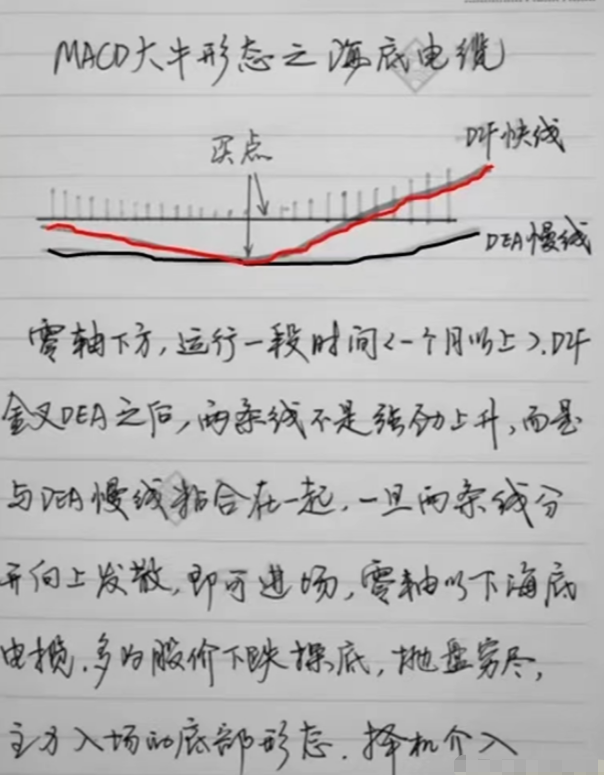 MACD大牛形态之海底电缆
DIF快线
买点
DEA慢线
零轴下方，运行一段时间<一个月以上>.DIF
金叉DEA之后，两条线不是强劲上升，而是
与DEA慢线粘合在一起，一旦两条线分
开向上发散，即可进场，零轴以下海底
电揽.多为股价下跌探底，抛盘穷尽，
主力入场的底部形态.择机介入